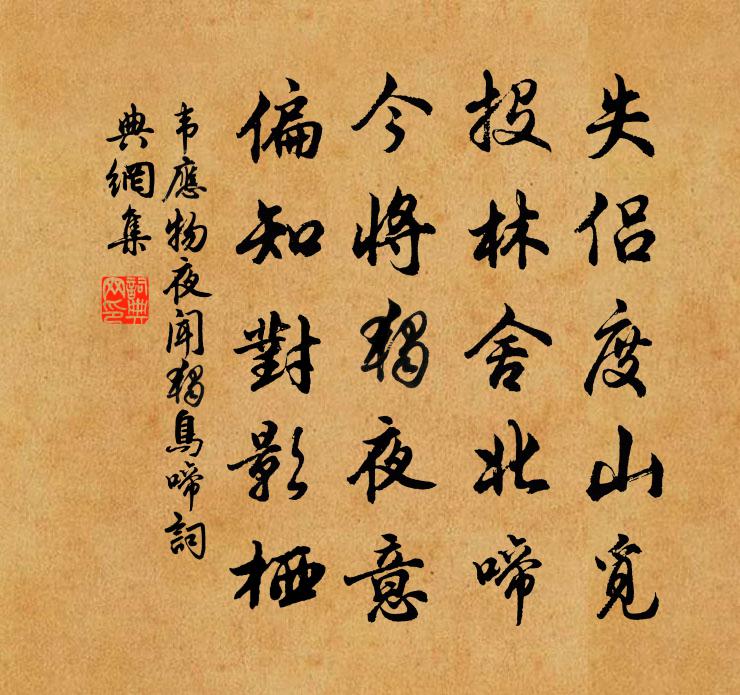 失侶度山覓
投林舍北啼
今將獨夜意
偏知對影栖
韦應物夜聞獨鳥啼詞
典網集
詞典
网印